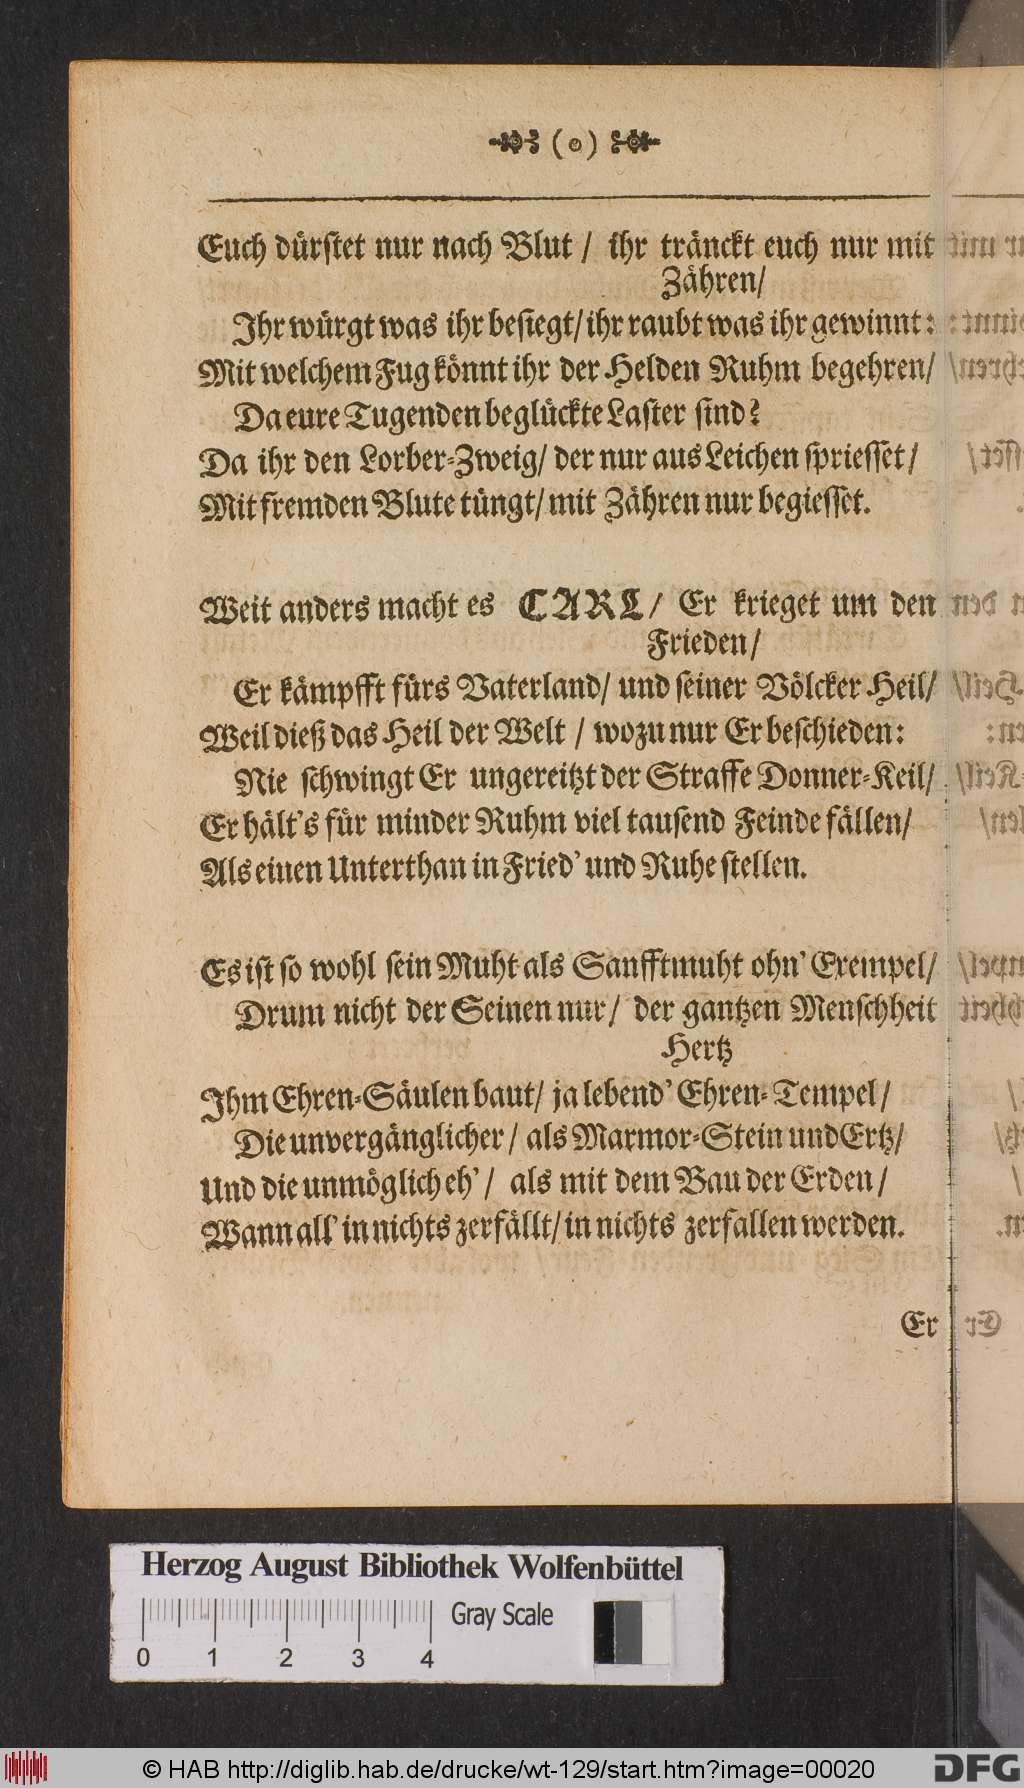 (o)
Euch dürſtet nur nach Blut / ihr tränckt euch nur mit
Zähren/
Ihr würgt was ihr beſiegt/ ihr raubt was ihr gewinnt:
Mit welchem Fug könnt ihr der Helden Ruhm begehren/
Da eure Tugenden beglückte Laſter ſind?
Da ihr den Lorber-Zweig/ der nur aus Leichen ſprieſſet/
Mit fremden Blute tüngt/ mit Zähren nur begieſſet.
Weit anders macht es CARL/ Er krieget um den
Frieden/
Er kämpfft fürs Vaterland/ und ſeiner Völcker Heil/
Weil dieß das Heil der Welt / wozu nur Er beſchieden:
Nie ſchwingt Er ungereitzt der Straffe Donner-Keil/
Er hält's für minder Ruhm viel tauſend Feinde fällen/
Als einen Unterthan in Fried' und Ruhe ſtellen.
Es iſt ſo wohl ſein Muht als Sanfftmuht ohn' Exempel/
Drum nicht der Seinen nur/ der gantzen Menſchheit
Hertz
Ihm Ehren-Säulen baut/ ja lebend' Ehren-Tempel/
Die unvergänglicher/ als Marmor-Stein und Ertz/
Und die unmöglich eh'/ als mit dem Bau der Erden/
Wann all' in nichts zerfällt/ in nichts zerfallen werden.
Er
Herzog August Bibliothek Wolfenbüttel
Gray Scale
0 1 2 3 4
© HAB http://diglib.hab.de/drucke/wt-129/start.htm?image=00020
DFG